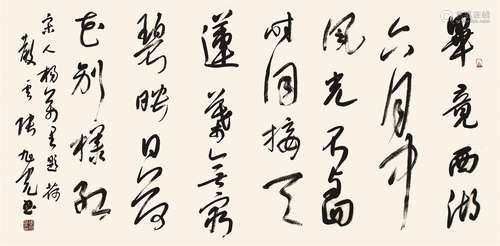 畢竟西湖
六月中
風光不與四
時同接天
蓮葉無窮
碧映日荷
花别樣紅
宋人楊萬里題荷
散云張旭光書